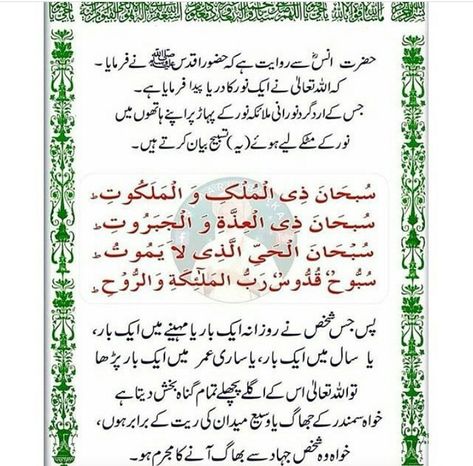 حضرت انسؓ سے روایت ہے کہ حضور اقدس ﷺ نے فرمایا ۔
کہ اللہ تعالیٰ نے ایک نور کا دریا پیدا فرمایا ہے۔
جس کے ارد گرد نورانی ملائکہ نور کے پہاڑ پر اپنے ہاتھوں میں
نور کے مٹکے لیے ہوئے (یہ) تسبیح بیان کرتے ہیں۔
سُبحَانَ ذِی الْمُلْکِ وَ الْمَلَکُوتِ ط
سُبحَانَ ذِی الْعِدَّةِ وَ الْجَبَرُوتِ ط
سُبْحَانَ الْحَیِّ الَّذِی لَا یَمُوتُ ط
سُبُّوحٌ قُدُّوسٌ رَبُّ الْمَلٰٓئِکَةِ وَ الرُّوْحِ ط
پس جس شخص نے روزانہ ایک بار یا مہینے میں ایک بار،
یا سال میں ایک بار، یا ساری عمر میں ایک بار پڑھا
تو اللہ تعالیٰ اس کے اگلے پچھلے تمام گناہ بخش دیتا ہے
خواہ سمندر کے جھاگ یا وسیع میدان کی ریت کے برابر ہوں،
خواہ وہ شخص جہاد سے بھاگ آنے کا مجرم ہو۔